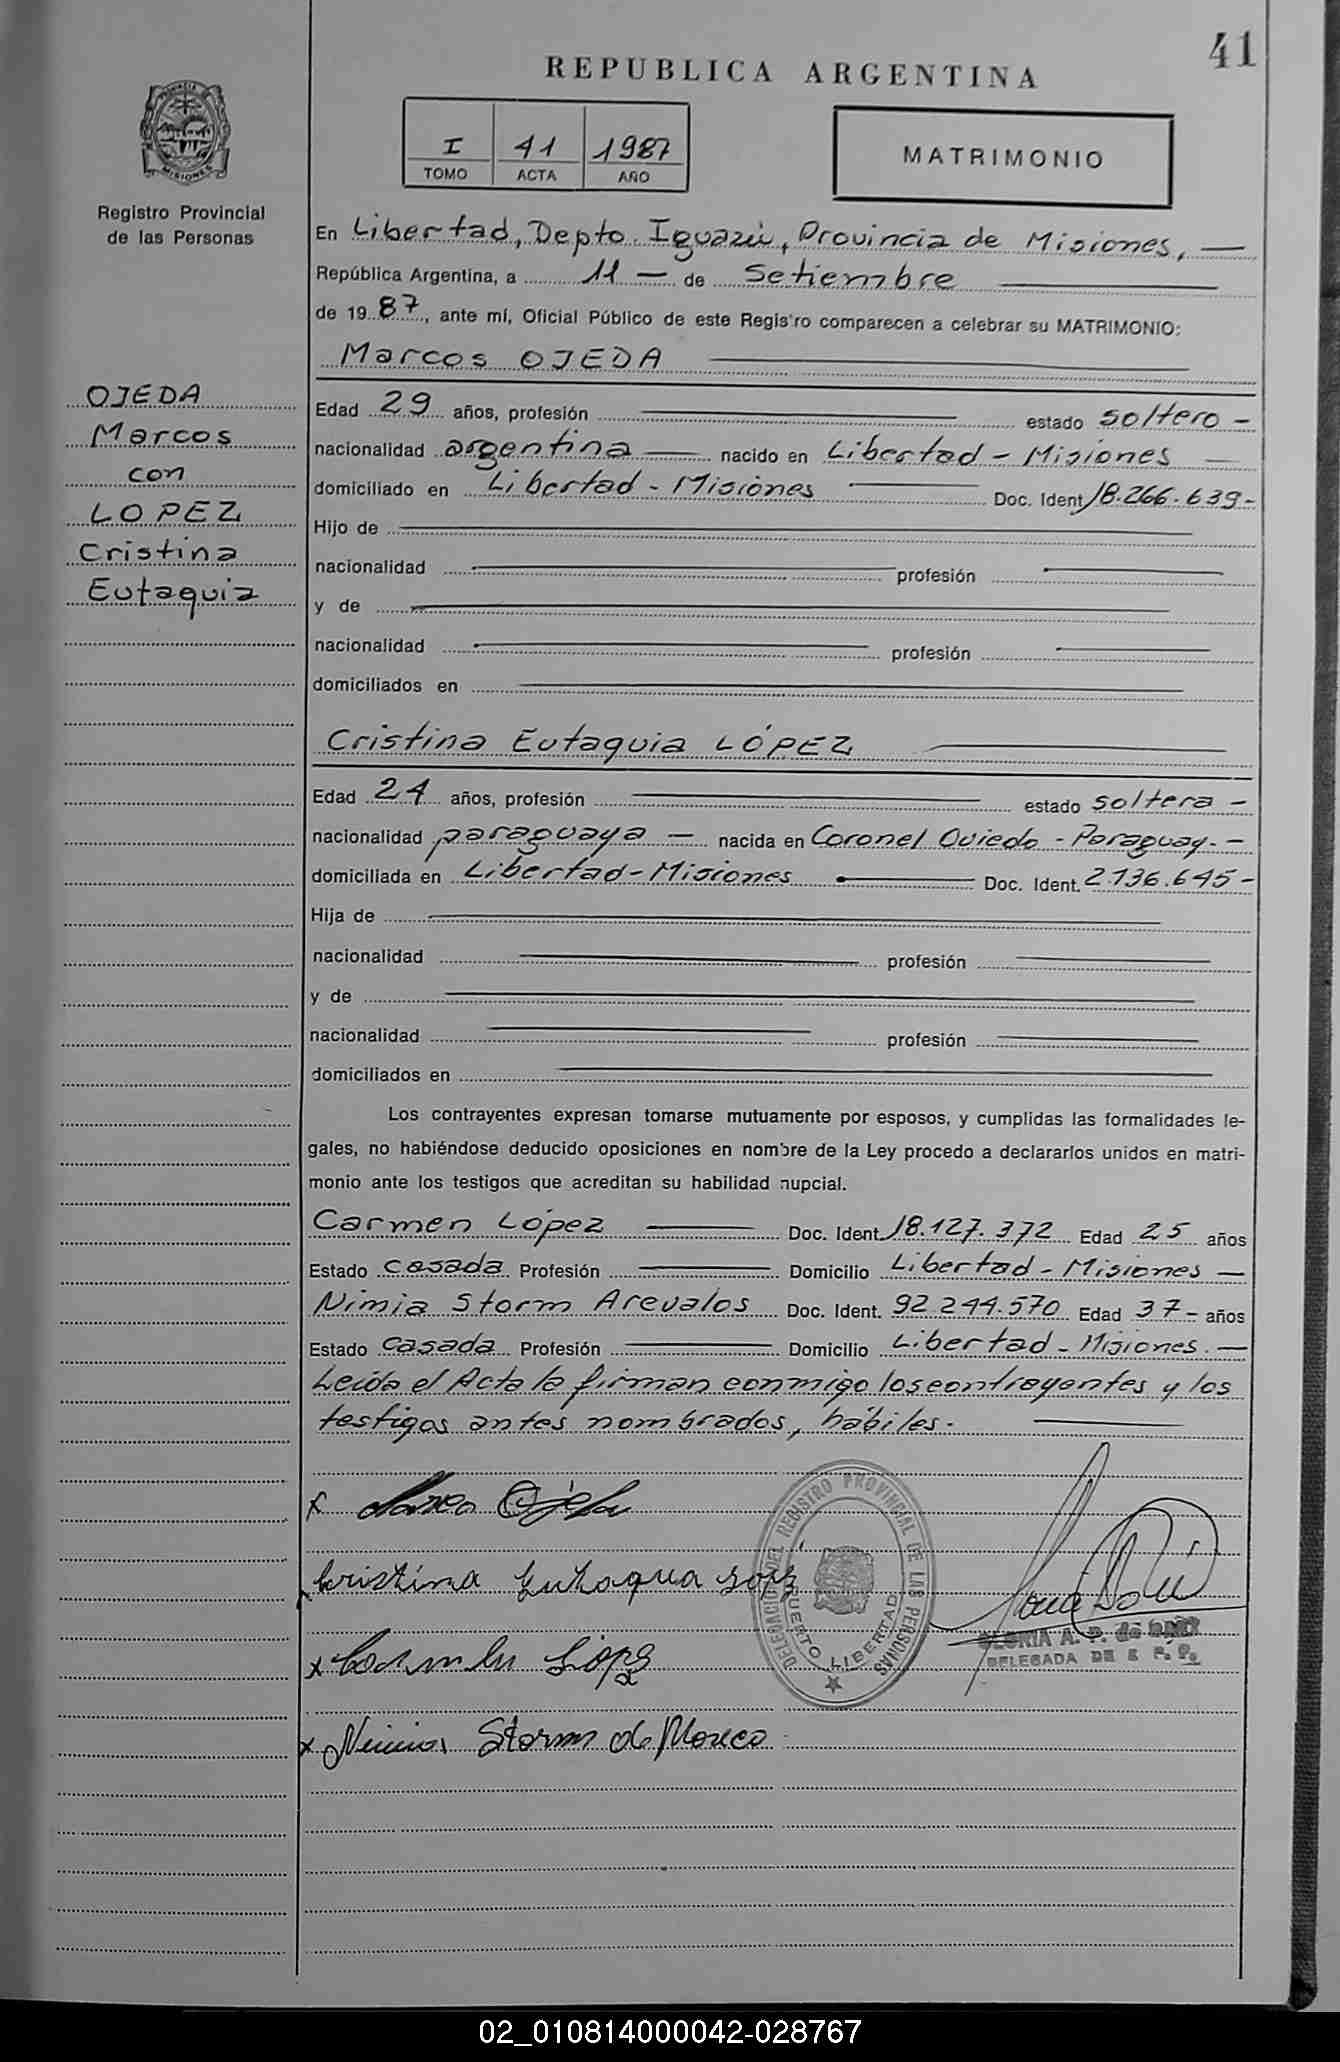 41
REPUBLICA ARGENTINA
I 41 1987
TOMO ACTA AÑO
MATRIMONIO
Registro Provincial
de las Personas
En Libertad, Depto. Iguazú, Provincia de Misiones,
República Argentina, a 11 de Setiembre
de 1987, ante mí, Oficial Público de este Registro comparecen a celebrar su MATRIMONIO:
Marcos OJEDA
OJEDA
Marcos
con
LOPEZ
Cristina
Eutaquia
Edad 29 años, profesión estado soltero -
nacionalidad argentina nacido en Libertad - Misiones
domiciliado en Libertad - Misiones Doc. Ident 18.266.639-
Hijo de
nacionalidad profesión
y de
nacionalidad profesión
domiciliados en
Cristina Eutaquia LÓPEZ
Edad 24 años, profesión estado soltera -
nacionalidad paraguaya - nacida en Coronel Oviedo - Paraguay. -
domiciliada en Libertad - Misiones Doc. Ident. 2.136.645-
Hija de
nacionalidad profesión
y de
nacionalidad profesión
domiciliados en
Los contrayentes expresan tomarse mutuamente por esposos, y cumplidas las formalidades le-
gales, no habiéndose deducido oposiciones en nombre de la Ley procedo a declararlos unidos en matri-
monio ante los testigos que acreditan su habilidad nupcial.
Carmen López Doc. Ident. 18.127.372 Edad 25 años
Estado casada Profesión Domicilio Libertad - Misiones -
Nimia Storm Arevalos Doc. Ident. 92.244.570 Edad 37- años
Estado casada Profesión Domicilio Libertad - Misiones. -
Leida el Acta la firman conmigo los contrayentes y los
testigos antes nombrados, hábiles.
x Marco Ojeda
Cristina Eutaqua Lopz
x Carmen Lopez
x Nimia Storm de
DELEGACION DEL REGISTRO PROVINCIAL DE LAS PERSONAS
PUERTO LIBERTAD
GLORIA A. P. de
DELEGADA DE R. P. P.
02_010814000042-028767